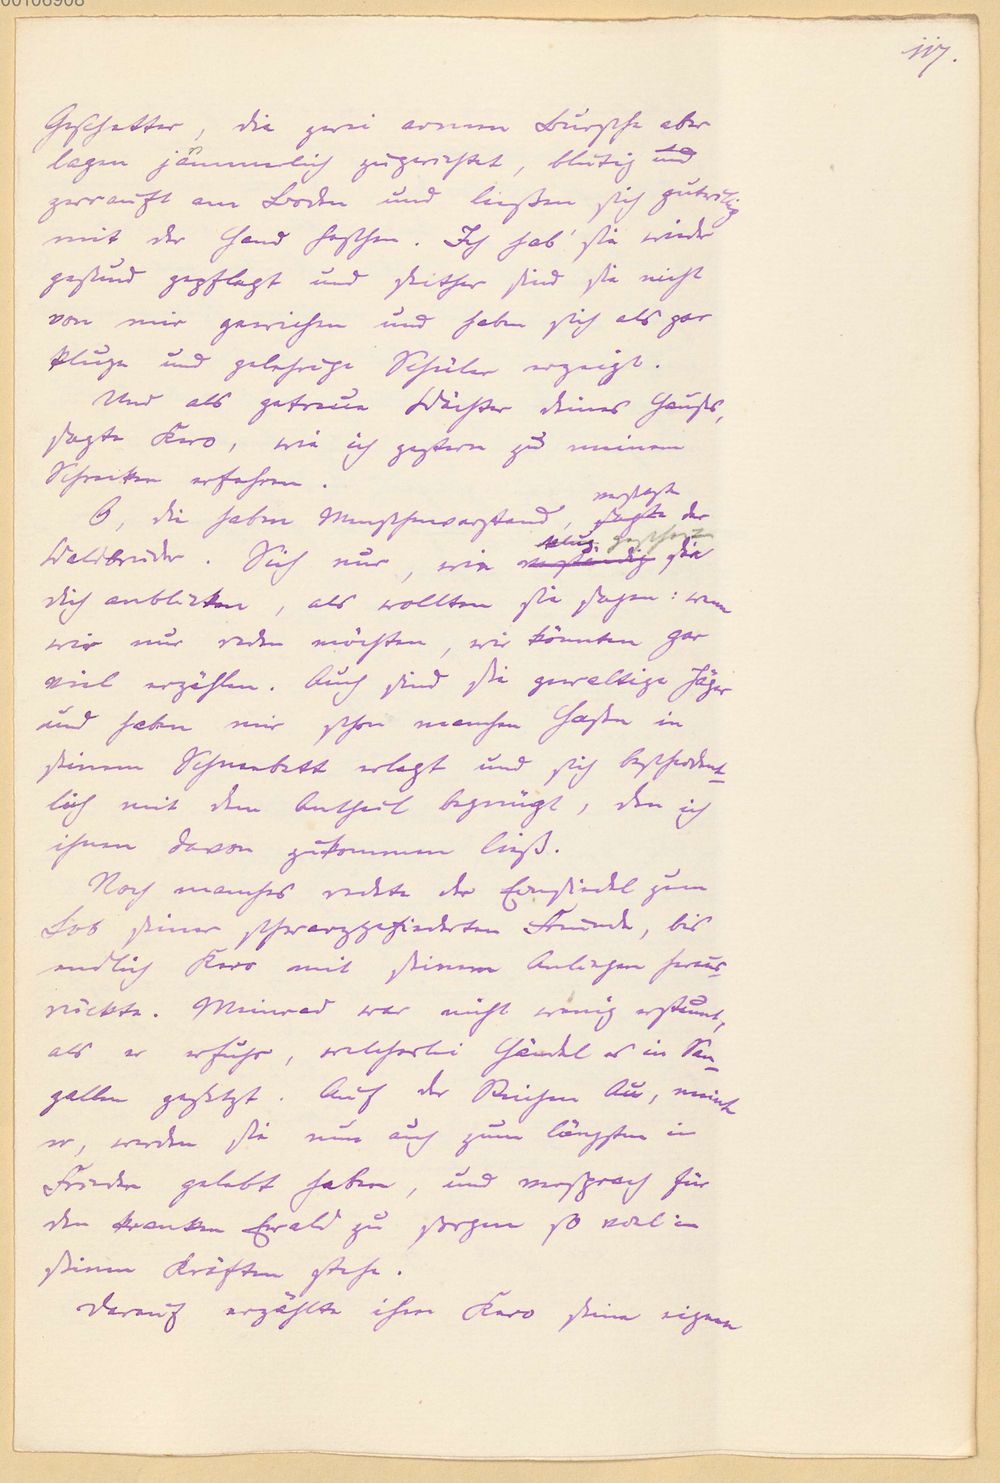 00106908
117.
Geschetter, die zwei armen Bursche aber
lagen jämmerlich zugerichtet, blutig und
zerrauft am Boden und ließen sich gutwillig
mit der Hand haschen. Ich hab' sie wieder
gesund gepflegt und seither sind sie nicht
von mir gewichen und haben sich als gar
kluge und gelehrige Schüler erzeigt.
Und als getreue Wächter deines Hauses,
sagte Kero, wie ich gestern zu meinem
Schrecken erfahren.
O, die haben Menschenverstand, sagte der
versetzte
Waldbruder. Sieh nur, wie verständig sie
klug gescheit
dich anblicken, als wollten sie sagen: wenn
wir nur reden möchten, wir könnten gar
viel erzählen. Auch sind sie gewaltige Jäger
und haben mir schon manchen Hasen in
seinem Schneebett erlegt und sich bescheident-
lich mit dem Antheil begnügt, den ich
ihnen davon zukommen ließ.
Noch manches redete der Einsiedel zum
Lob seiner schwarzgefiederten Freunde, bis
endlich Kero mit seinem Anliegen heraus-
rückte. Meinrad war nicht wenig erstaunt,
als er erfuhr, welcherlei Händel es in San-
gallen gesetzt. Auf der Reichen Au, meinte
er, werden sie nun auch zum längsten in
Frieden gelebt haben, und versprach für
den kranken Ewald zu sorgen so viel in
seinen Kräften stehe.
Darauf erzählte ihm Kero seine eignen